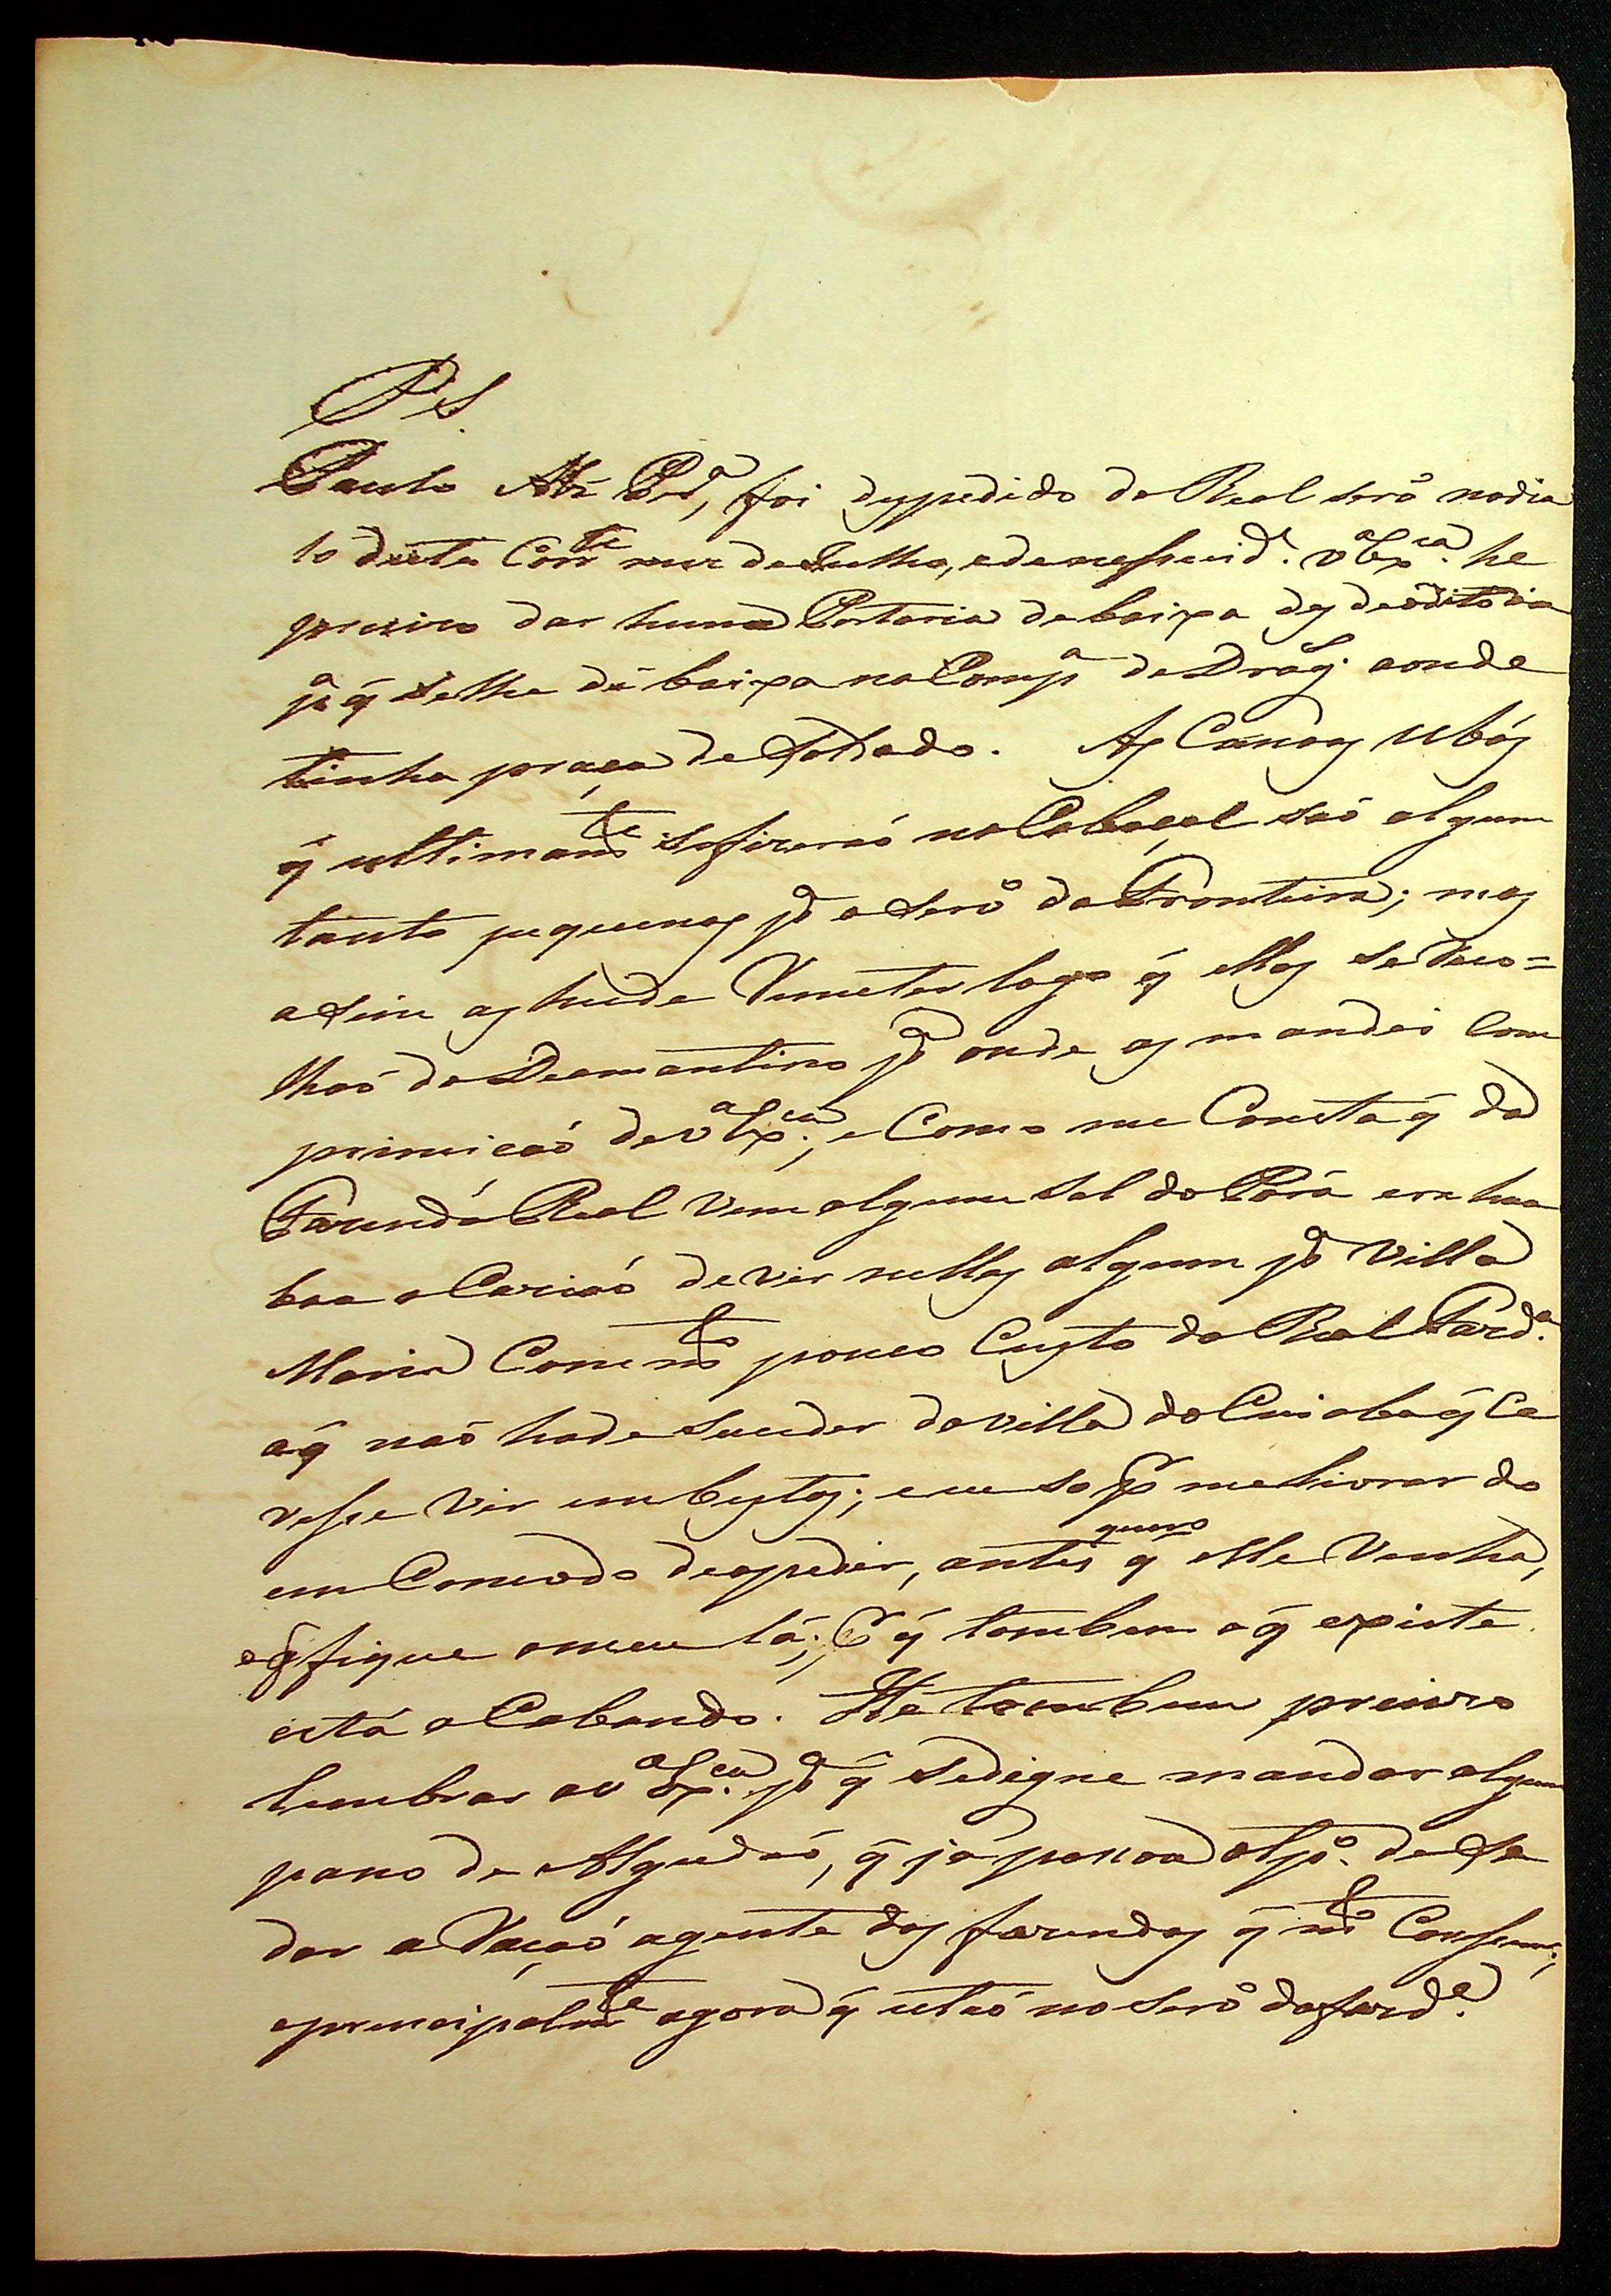 PS.
Paulo Alz̃ Per.ª, foi despedido do Real serv.º no dia
10 deste Corr.te mez de Julho, e de necessid.e V.ª Ex.cia he
preciso dar huma Portaria de baixa des de o dito dia
p.ª q̃ se lhe dê baixa na Comp.ª de Drag.s aonde
tinha praça de Soldado. As Canoas Ubás
q̃ ultimam.te se fizeraõ no Cabaçal saõ algum
tanto pequenas p.ª o serv.º da Fronteira; mas
asim as hei de Remeter logo q̃ ellas se Reco=
lhaõ do Deamantino p.ª onde as mandei Com
primiçaõ de V.ª Ex.cia; e Como me Consta q̃ da
Fazenda Real vem algum sal do Pará era hua
boa oCaziaõ de vir nellas algum p.ª Villa
Maria Com m.to pouco Custo da Real Fazd.ª
oq̃ naõ hade suceder da villa do Cuiaba q̃ Ce
vesse vir em bestas; e eu so p.r me livrar do
em Comodo de o pedir, antes quero q̃ elle Venha,
e q̃ fique o meu lá; P.r q̃ tambem o q̃ existe
está a Cabando. Hé tambem preciso
lembrar a V.ª Ex.cia p.ª q̃ se digne mandar algum
pano de Algudaõ, q̃ já passa o tp.º de se
dar a Raçaõ a gente das fazendas q̃ m.to Conssome;
e principalm.te agora q̃ estaõ no serv.º da fazd.ª